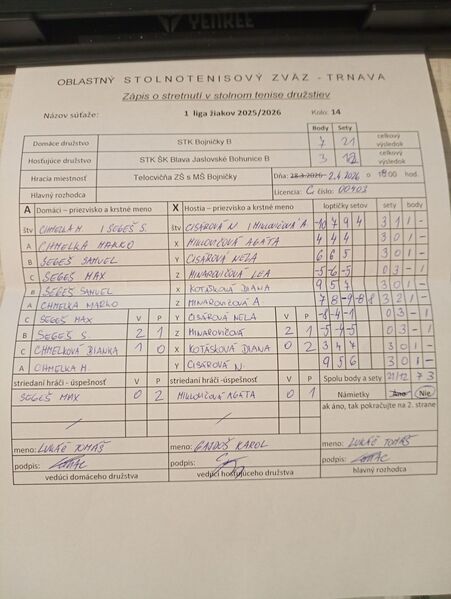 YENKEE
OBLASTNÝ STOLNOTENISOVÝ ZVÄZ - TRNAVA
Zápis o stretnutí v stolnom tenise družstiev
Názov súťaže: 1 liga žiakov 2025/2026 Kolo: 14
Body Sety
Domáce družstvo STK Bojničky B 7 21 celkový výsledok
Hosťujúce družstvo STK ŠK Blava Jaslovské Bohunice B 3 12 celkový výsledok
Hracia miestnosť Telocvičňa ZŠ s MŠ Bojničky Dňa: 28.3.2026 2.4.2026 o 18:00 hod.
Hlavný rozhodca Licencia: C číslo: 00403
A Domáci – priezvisko a krstné meno X Hostia – priezvisko a krstné meno loptičky setov sety body
štv CHMELKA M. / SEGEŠ S. štv CISÁROVÁ N / MIKLOVIČOVÁ A -10 7 9 4 3 1 1 -
A CHMELKA MARKO X MIKLOVIČOVÁ AGÁTA 4 4 4 3 0 1 -
B SEGEŠ SAMUEL Y CISÁROVÁ NELA 6 6 5 3 0 1 -
C SEGEŠ MAX Z MINAROVIČOVÁ LEA -5 -6 -5 0 3 - 1
B SEGEŠ SAMUEL X KOTÁSKOVÁ DIANA 9 5 7 3 0 1 -
A CHMELKA MARKO Z MINAROVIČOVÁ A 7 8 -9 -8 8 3 2 1 -
C SEGEŠ MAX V P Y CISÁROVÁ NELA V P -6 -4 -1 0 3 - 1
B SEGEŠ S. 2 1 Z MINAROVIČOVÁ 2 1 -5 -4 -5 0 3 - 1
C CHMELKOVÁ BIANKA 1 0 X KOTÁSKOVÁ DIANA 0 2 3 4 7 3 0 1 -
A CHMELKA M. Y CISÁROVÁ N. 9 5 6 3 0 1 -
striedaní hráči - úspešnosť V P striedaní hráči - úspešnosť V P Spolu body a sety 21/12 7 3
SEGEŠ MAX 0 2 MIKLOVIČOVÁ AGÁTA 0 1 Námietky Áno Nie
ak áno, tak pokračujte na 2. strane
meno: LUKÁŠ TOMÁŠ meno: GAJDOŠ KAROL meno: LUKÁŠ TOMÁŠ
podpis: podpis: podpis:
vedúci domáceho družstva vedúci hosťujúceho družstva hlavný rozhodca